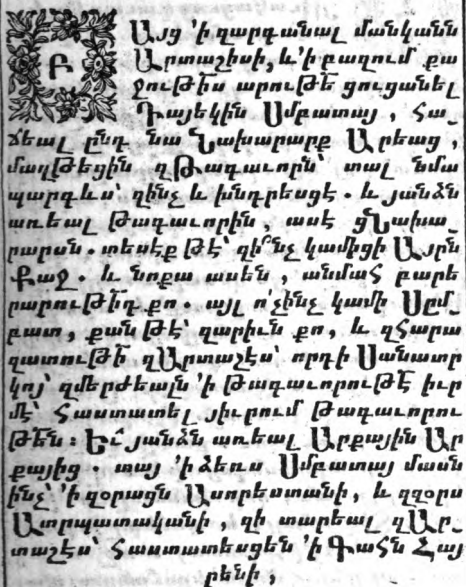 Բ Այց ՛ի զարգանալ մանկանն
Արտաշիսի, և ՛ի բազում քա
ջութիս արութե ցուցանել
Դայեկին Սմբատայ, Հա_
ճեալ ընդ նա Նախարարք Արեաց,
մաղթեցին զԹագաւորն՝ տալ նմա
պարգևս՝ զինչ և խնդրեսցէ. և յանձն
առեալ Թագաւորին, ասէ ցՆախա_
րարսն. տեսէք թէ՝ զի՞նչ կամիցի Այրն
Քաջ. և նոքա ասեն, անմահ բարե
րարութիդ քո. այլ ո՛չինչ կամի Սըմ_
բատ, քան թէ՝ զարիւն քո, և զՀարա
զատութի զԱրտաշէս՝ որդի Սանատր
կոյ՝ զմերժեալն ՛ի թագաւորութէ իւր
մէ՝ հաստատել յիւրում թագաւորու
թեն: Եւ յանձն առեալ Արքային Ար
քայից. տայ ՛ի ձեռս Սմբատայ մասն
ինչ՝ ՛ի զօրացն Ասորեստանի, և զզօրս
Ատրպատականի, զի տարեալ զԱր_
տաշէս՝ հաստատեսցեն ՛ի Գահն Հայ
րենի,